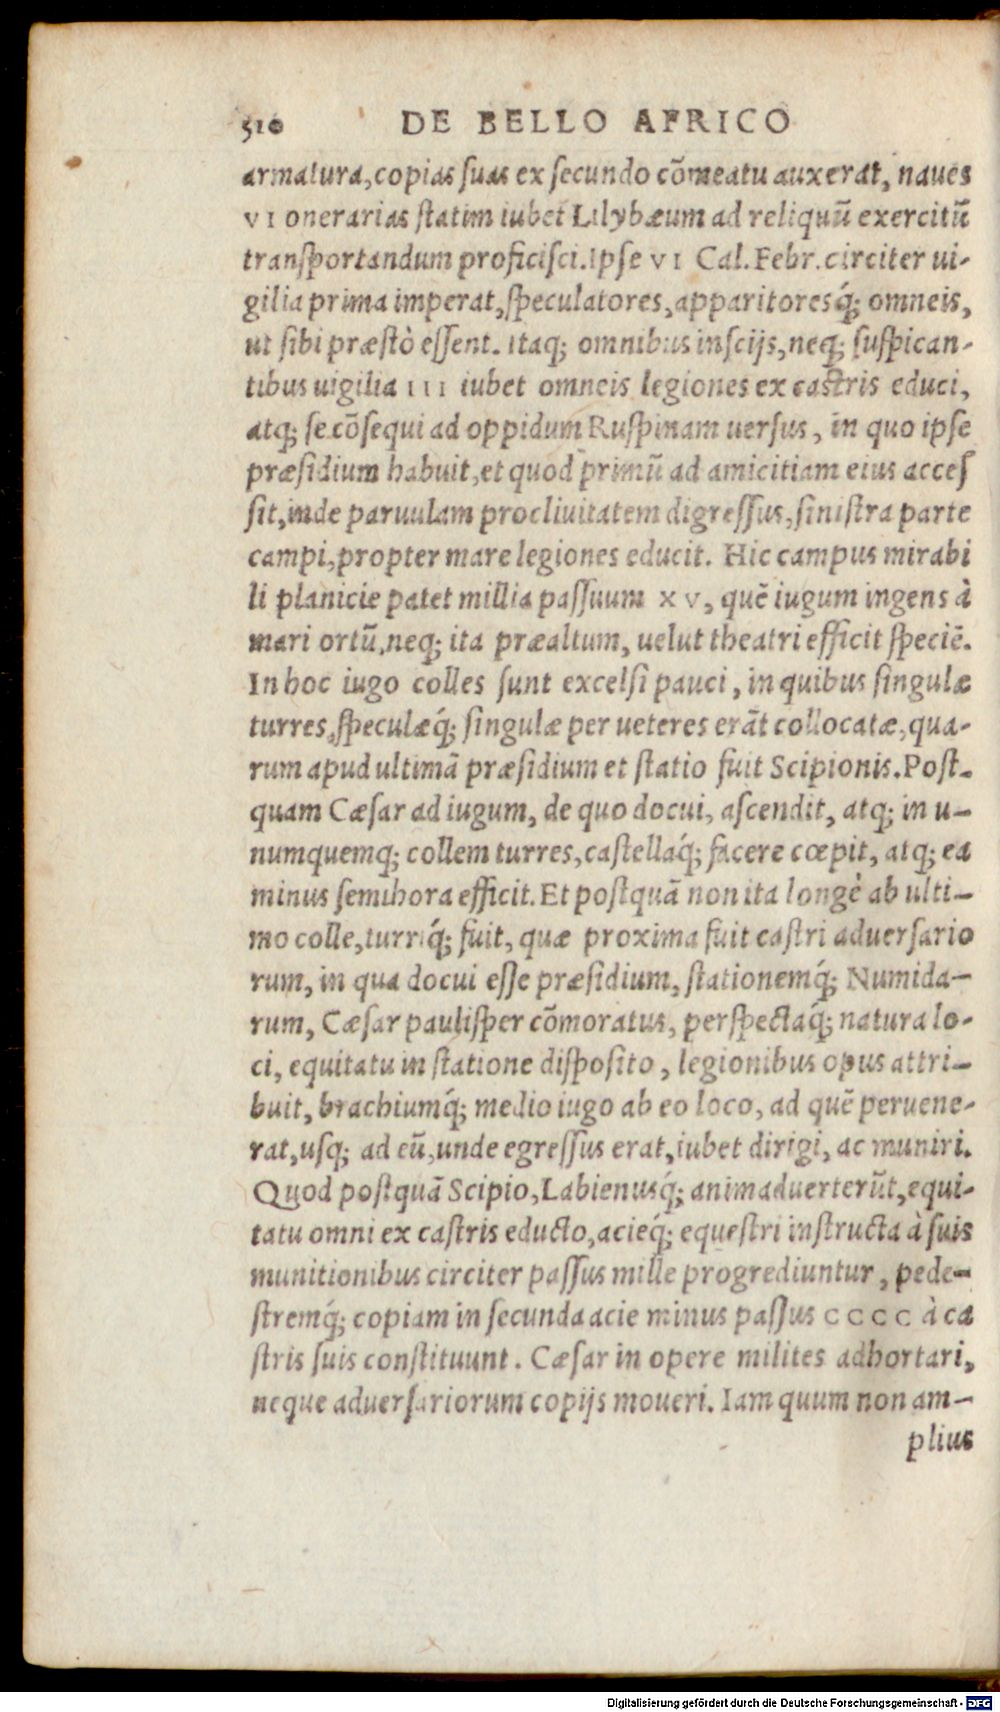 510 DE BELLO AFRICO
armatura, copias ſuas ex ſecundo cõmeatu auxerat, naues
VI onerarias ſtatim iubet Lilybæum ad reliquũ exercitũ
tranſportandum proficiſci. Ipſe VI Cal. Febr. circiter ui-
gilia prima imperat, ſpeculatores, apparitoresq́; omneis,
ut ſibi præſtò eſſent. Itaq; omnibus inſcijs, neq; ſuſpican-
tibus uigilia III iubet omneis legiones ex caſtris educi,
atq; ſe cõſequi ad oppidum Ruſpinam uerſus, in quo ipſe
præſidium habuit, et quod primũ ad amicitiam eius acceſ
ſit, inde paruulam procliuitatem digreſſus, ſiniſtra parte
campi, propter mare legiones educit. Hic campus mirabi
li planicie patet millia paſſuum XV, quẽ iugum ingens à
mari ortũ, neq; ita præaltum, uelut theatri efficit ſpeciẽ.
In hoc iugo colles ſunt excelſi pauci, in quibus ſingulæ
turres, ſpeculæq́; ſingulæ per ueteres erãt collocatæ, qua-
rum apud ultimã præſidium et ſtatio fuit Scipionis. Poſt-
quam Cæſar ad iugum, de quo docui, aſcendit, atq; in u-
numquemq; collem turres, caſtellaq́; facere cœpit, atq; ea
minus ſemihora efficit. Et poſtquã non ita longè ab ulti-
mo colle, turriq́; fuit, quæ proxima fuit caſtri aduerſario
rum, in qua docui eſſe præſidium, ſtationemq́; Numida-
rum, Cæſar pauliſper cõmoratus, perſpectaq́; natura lo-
ci, equitatu in ſtatione diſpoſito, legionibus opus attri-
buit, brachiumq́; medio iugo ab eo loco, ad quẽ peruene-
rat, uſq; ad eũ, unde egreſſus erat, iubet dirigi, ac muniri.
Quod poſtquã Scipio, Labienusq́; animaduerterũt, equi-
tatu omni ex caſtris educto, acieq́; equeſtri inſtructa à ſuis
munitionibus circiter paſſus mille progrediuntur, pede-
ſtremq́; copiam in ſecunda acie minus paſſus CCCC à ca
ſtris ſuis conſtituunt. Cæſar in opere milites adhortari,
neque aduerſariorum copijs moueri. Iam quum non am-
plius
Digitalisierung gefördert durch die Deutsche Forschungsgemeinschaft - DFG